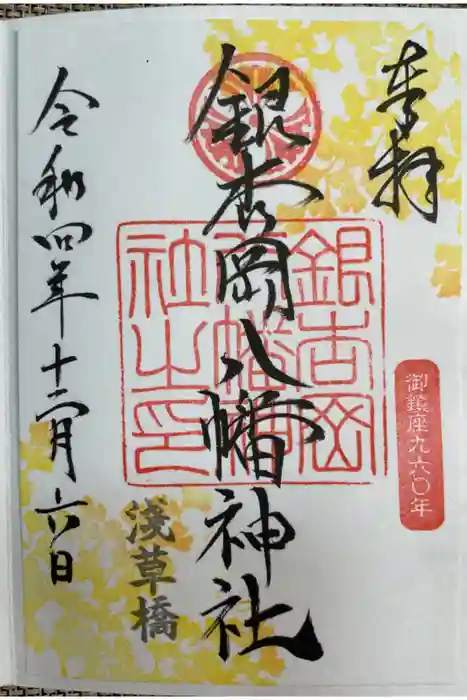 奉拝
御鎮座九六〇年
銀杏岡八幡神社
銀杏岡八幡神社之印
浅草橋
令和四年十二月六日